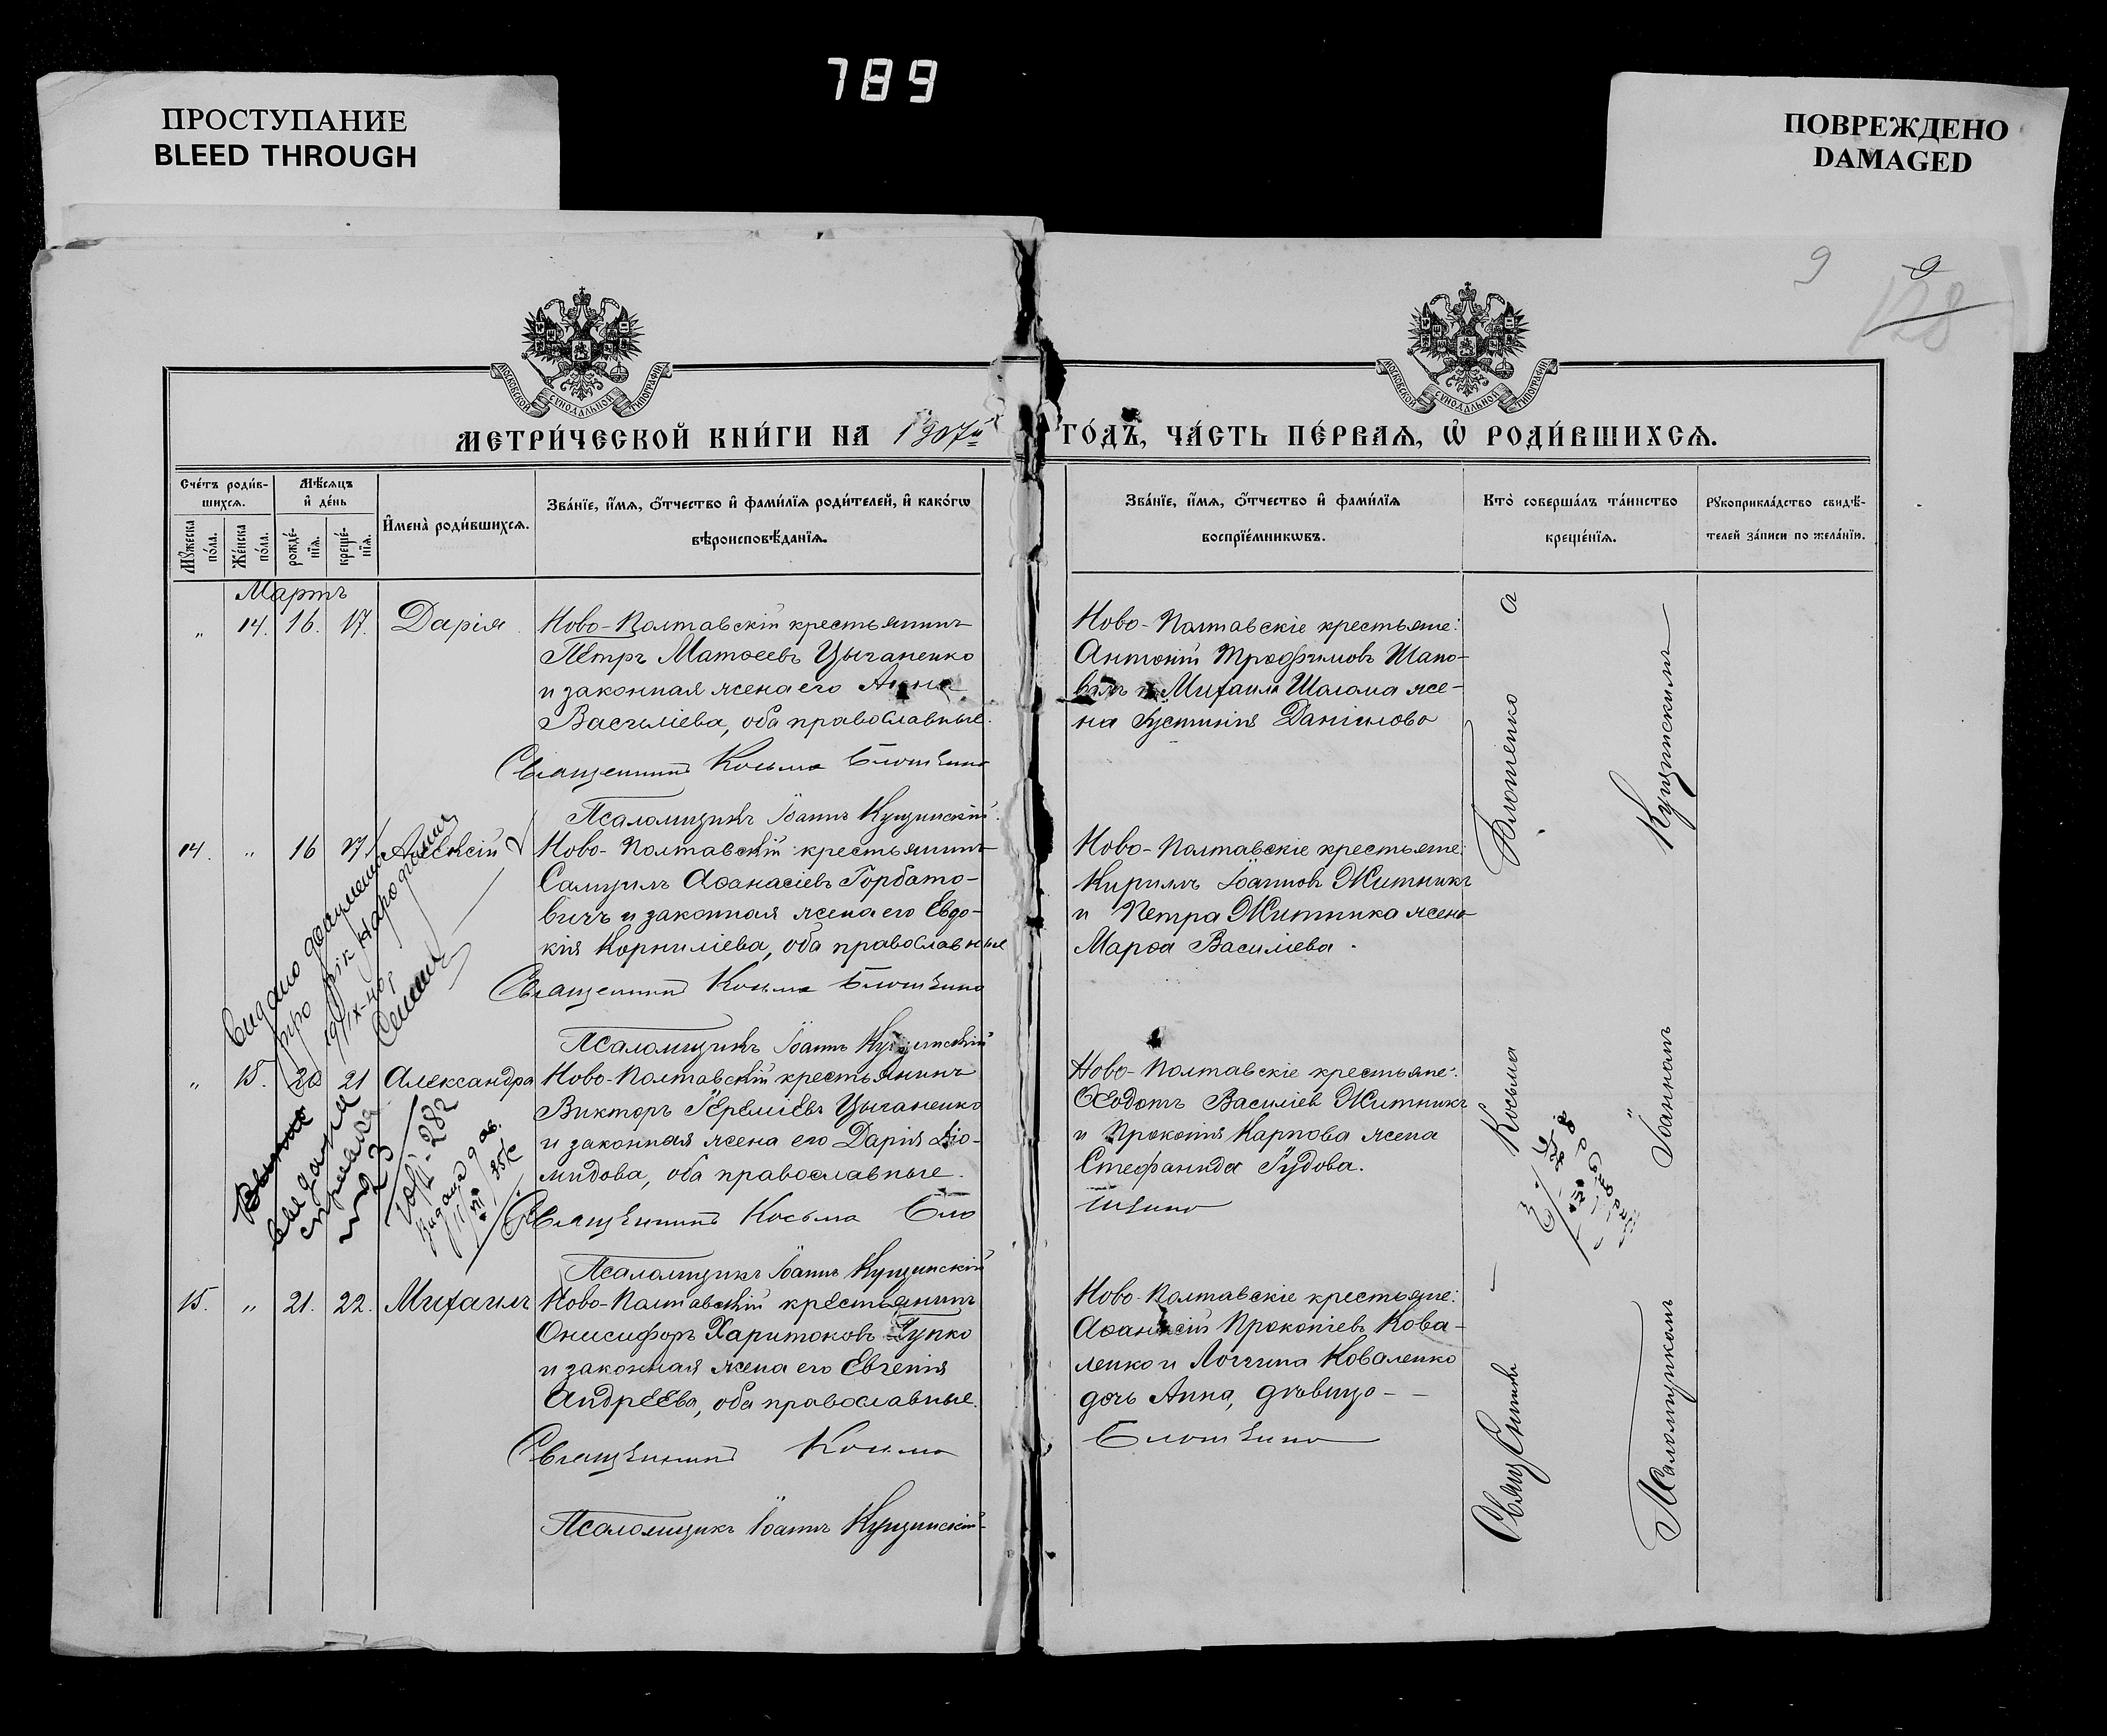 789
ПРОСТУПАНИЕ
BLEED THROUGH
ПОВРЕЖДЕНО
DAMAGED
9
9
128
МОСКОВСКОЙ СѴНОДАЛЬНОЙ ТИПОГРАФІИ
МОСКОВСКОЙ СѴНОДАЛЬНОЙ ТИПОГРАФІИ
МЕТРИ́ЧЕСКОЙ КНИ́ГИ НА 1907й ГО́ДЪ, ЧА́СТЬ ПЕ́РВАѦ, Ѽ РОДИ́ВШИХСѦ.
Сче́тъ роди́в-
шихсѧ.
Мꙋ́жеска по́ла.
Же́нска по́ла.
Мѣ́сѧцъ
и҆ де́нь
рожде́-
нїѧ.
креще́-
нїѧ.
И҆мена̀ роди́вшихсѧ.
Зва́нїе, и҆́мѧ, ѻ҆́тчество и҆ фами́лїѧ роди́телей, и҆ како́гѡ
вѣроисповѣ́данїѧ.
Зва́нїе, и҆́мѧ, ѻ҆́тчество и҆ фами́лїѧ
воспрїе́мникѡвъ.
Кто̀ соверша́лъ та́инство
креще́нїѧ.
Рꙋкоприкла́дство свидѣ́-
телей за́писи по жела́нїю.
Мартъ
„ 14. 16. 17. Дарія
Ново-Полтавскій крестьянинъ
Петръ Матѳеевъ Цыганенко
и законная жена его Анна
Василіева, оба православные.
Священникъ Косьма
Псаломщикъ Іоаннъ Кущинскій.
Ново-Полтавскіе крестьяне:
Антоній Трофимовъ Шапо-
валъ и Михаила Шагома же-
на Іустинія Даніилова
14. „ 16 17 Алексій
Ново-Полтавскій крестьянинъ
Самуилъ Аѳанасіевъ Горбато-
вичъ и законная жена его Евдо-
кія Корниліева, оба православные
Священникъ Косьма
Псаломщикъ Іоаннъ Кущинскій
Ново-Полтавскіе крестьяне:
Кириллъ Іоанновъ Житникъ
и Петра Житника жена
Марѳа Василіева.
Видано документ
про рік народження
19/IX-40р
„ 15. 20 21 Александра
Ново-Полтавскій крестьянинъ
Викторъ Іереміевъ Цыганенко
и законная жена его Дарія Діо-
мидова, оба православные.
Священникъ Косьма
Псаломщикъ Іоаннъ Кущинскій
Ново-Полтавскіе крестьяне:
Ѳеодотъ Василіевъ Житникъ
и Прокопія Карпова жена
Стефанида Гудова.
15. „ 21. 22. Михаилъ
Ново-Полтавскій крестьянинъ
Онисифоръ Харитоновъ Гупко
и законная жена его Евгенія
Андреева, оба православные.
Священникъ Косьма
Псаломщикъ Іоаннъ Кущинскій
Ново-Полтавскіе крестьяне:
Аѳанасій Прокопіевъ Кова-
ленко и Логгина Коваленко
дочь Анна, дѣвица
Священникъ Косьма
Псаломщикомъ Іоанномъ Кущинскимъ